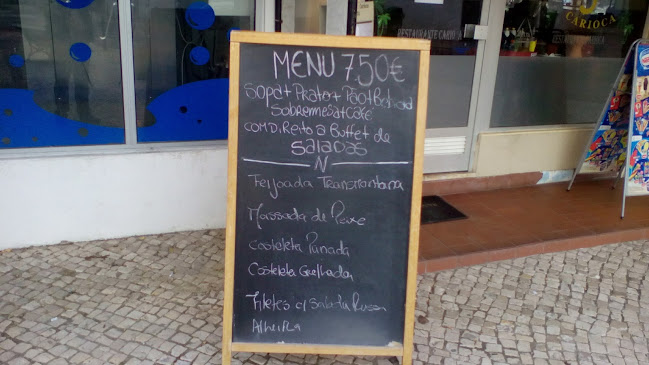 MENU 7.50€
Sopa+Prato+Pão+Bebida
Sobremesa+Café
COM Direito a Buffet de
Saladas
N
Feijoada Transmontana
Massada de Peixe
Costeleta Panada
Costeleta Grelhada
Filetes c/ Salada Russa
Alheira
RESTAURANTE CARIOCA
CARIOCA